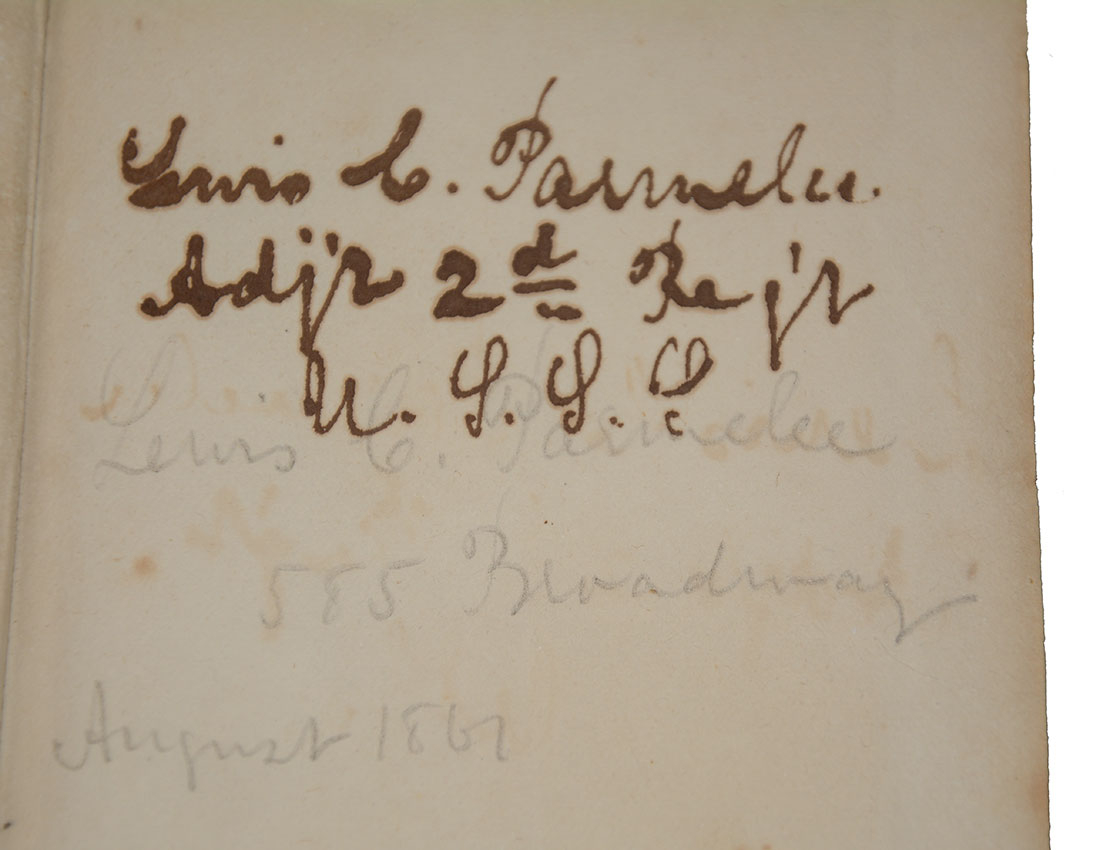 Lewis C. Parmelee.
Adj't 2d Reg't
U. S. S. S
Lewis C. Parmelee
585 Broadway.
August 1861